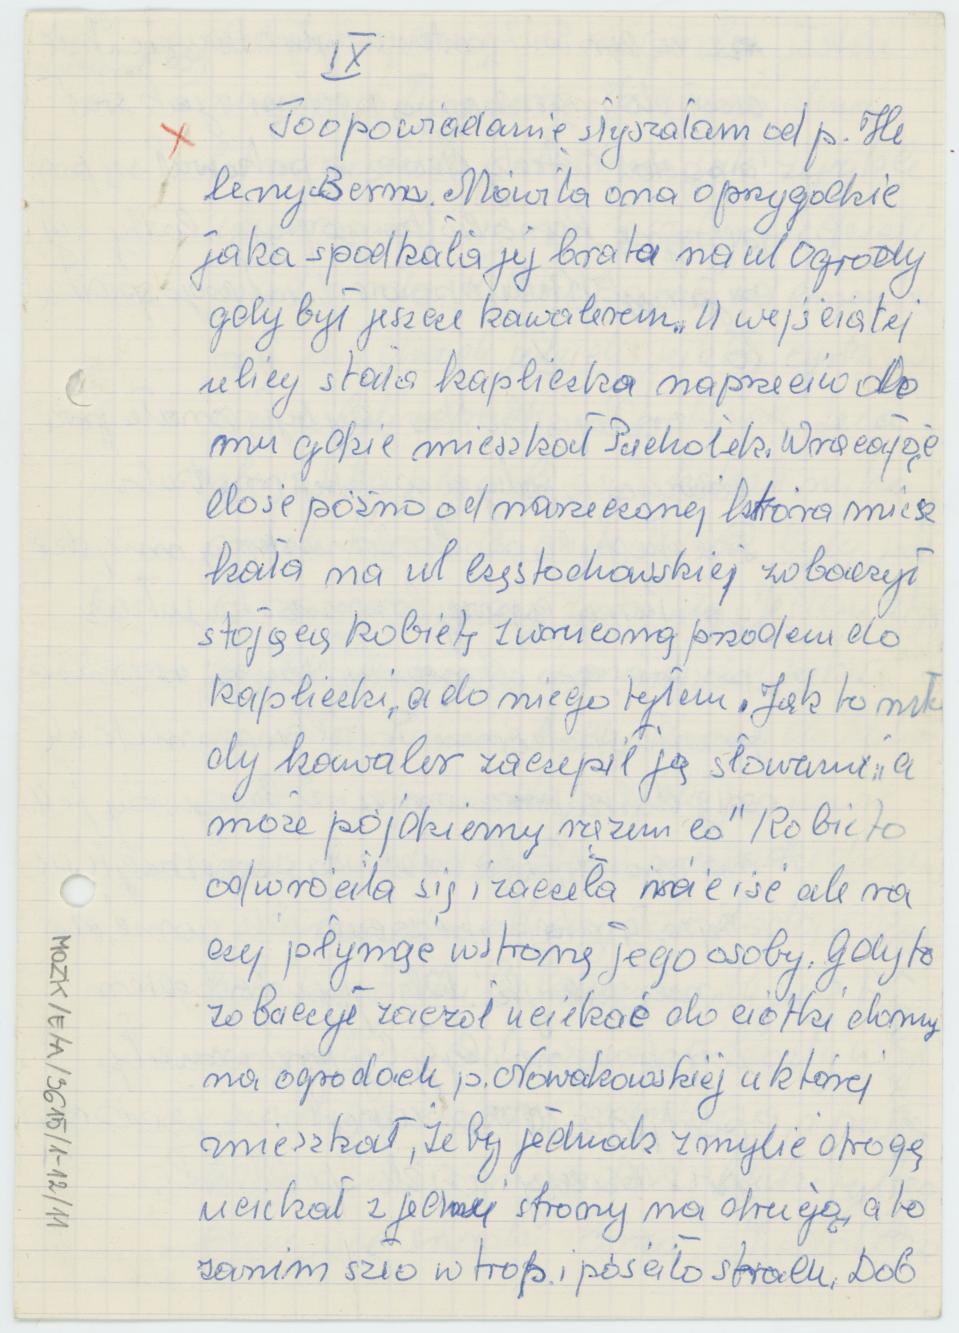 IX
To opowiadanie słyszałam od p. He
leny Berns. Mówiła ona o przygodzie
jaka spodkała jej brata na ul Ogrody
gdy był jeszcze kawalerem. U wejścia tej
ulicy stała kapliczka naprzeciw do
mu gdzie mieszkał Pachołek. Wracając
dość późno od narzeczonej która miesz
kała na ul Częstochowskiej zobaczył
stojącą kobietę zwróconą przodem do
kapliczki, a do niego tyłem. Jak to mło
dy kawaler zaczepił ją słowami „a
może pójdziemy razem co" Kobieta
odwróciła się i zaczęła iść ale ra
czej płynąć w stronę jego osoby. Gdy to
zobaczył zaczoł uciekać do ciotki domu
na ogrodach p. Nowakowskiej u której
mieszkał, żeby jednak zmylić drogę
uciekał z jednej strony na drugą, a to
zanim szło w trop i pościło strach. Dob
MOZK/E/A/3615/1-12/11